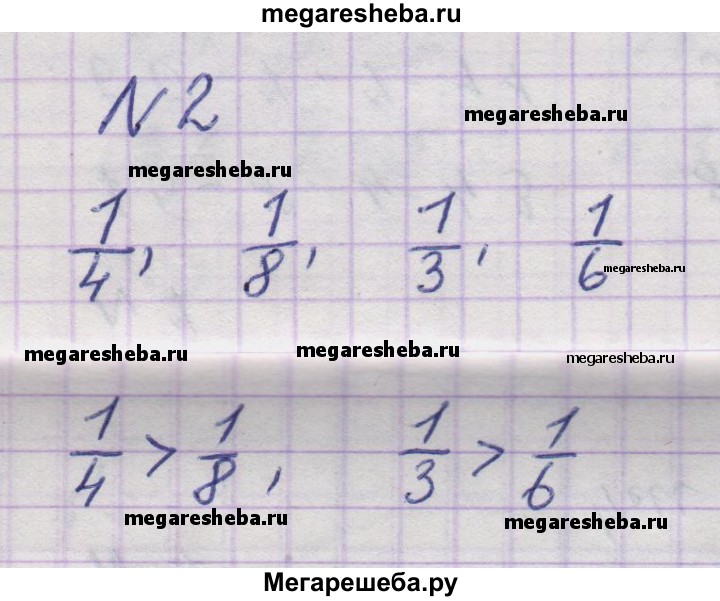 megaresheba.ru
N 2
megaresheba.ru
megaresheba.ru
1/4, 1/8, 1/3, 1/6
megaresheba.ru
megaresheba.ru
megaresheba.ru
megaresheba.ru
1/4 > 1/8, 1/3 > 1/6
megaresheba.ru
megaresheba.ru
Мегарешеба.ру